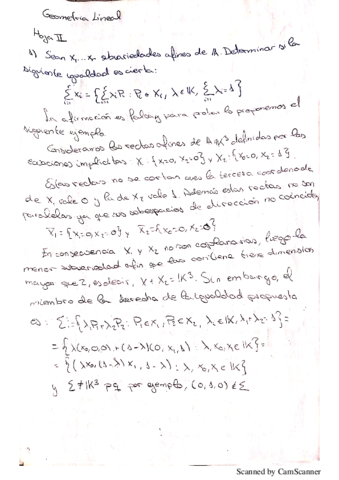 Geometría Lineal
Hoja II
1) Sean X₁,...Xᵣ subvariedades afines de A. Determinar si la
siguiente igualdad es cierta:
ΣXᵢ = {ΣλᵢPᵢ : Pᵢ ∈ Xᵢ, λᵢ ∈ K, Σλᵢ = 1}
La afirmación es falsa y para probarlo proponemos el
siguiente ejemplo.
Consideramos las rectas afines de definidas por las
ecuaciones implícitas: X₁ = {x₁=0, x₂=0} y X₂ = {x₀=0, x₂=1}.
Estas rectas no se cortan pues la tercera coordenada
de X₁ vale 0 y la de X₂ vale 1. Además estas rectas no son
paralelas ya que sus subespacios de dirección no coinciden,
X₁ = {x₁=0, x₂=0} y X₂ = {x₀=0, x₂=0}
En consecuencia X₁ y X₂ no son coplanarias, luego la
menor subvariedad afín que las contiene tiene dimensión
mayor que 2, es decir, X₁ + X₂ = K³. Sin embargo, el
miembro de la derecha de la igualdad propuesta
es: Σ = {λ₁P₁ + λ₂P₂ : P₁ ∈ X₁, P₂ ∈ X₂, λᵢ ∈ K, λ₁+λ₂ = 1} =
= {λ(x₀,0,0) + (1-λ)(0, x₁, 1) : λ, x₀, x₁ ∈ K} =
= {(λx₀, (1-λ)x₁, 1-λ) : λ, x₀, x₁ ∈ K}
y Σ ≠ K³ pq por ejemplo,
Scanned by CamScanner